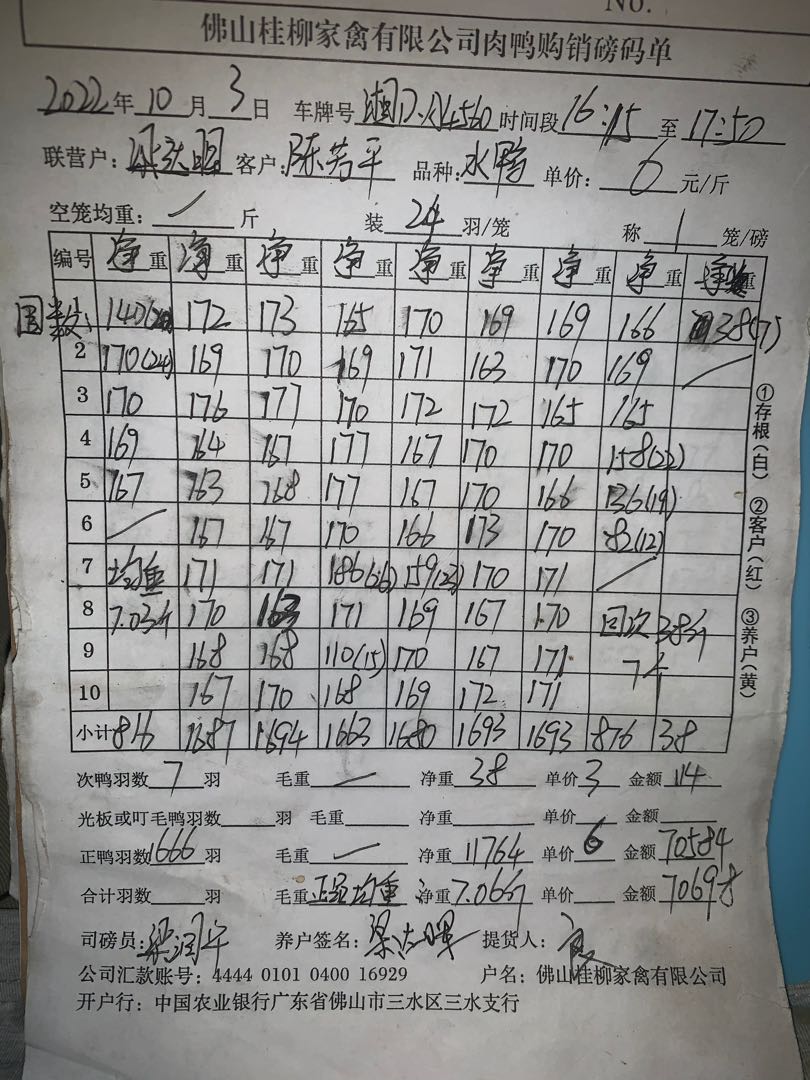 No.
佛山桂柳家禽有限公司肉鸭购销磅码单
2022年10月3日 车牌号 4560 时间段16:15至17:50
联营户: 客户:陈芳平 品种:水鸭 单价:6元/斤
空笼均重:/斤 装24羽/笼 称1笼/磅
编号 净重 净重 净重 净重 净重 净重 净重 净重 净重
回数: 140 172 173 165 170 169 169 166 38(7)
2 170(24) 169 170 169 171 163 170 169 /
3 170 176 177 170 172 172 165 165
4 169 164 167 177 167 170 170 158(22)
5 167 163 168 177 167 170 166 136(19)
6 / 167 167 170 166 173 170 82(12)
7 均重 171 171 186(26) 159(23) 170 171 /
8 7.03斤 170 163 171 169 167 170 回次 38斤
9 168 168 110(15) 170 167 171 7个
10 167 170 168 169 172 171
小计 816 1687 1694 1663 1680 1693 1693 876 38
次鸭羽数7羽 毛重/ 净重38 单价3 金额114
光板或叮毛鸭羽数 羽 毛重 净重 单价 金额
正鸭羽数1666羽 毛重/ 净重11764 单价6 金额70584
合计羽数 羽 毛重正品均重: 净重7.06斤 单价 金额70698
司磅员:梁润午 养户签名:梁 提货人:
公司汇款账号:4444 0101 0400 16929 户名:佛山桂柳家禽有限公司
开户行:中国农业银行广东省佛山市三水区三水支行
①存根(白) ②客户(红) ③养户(黄)